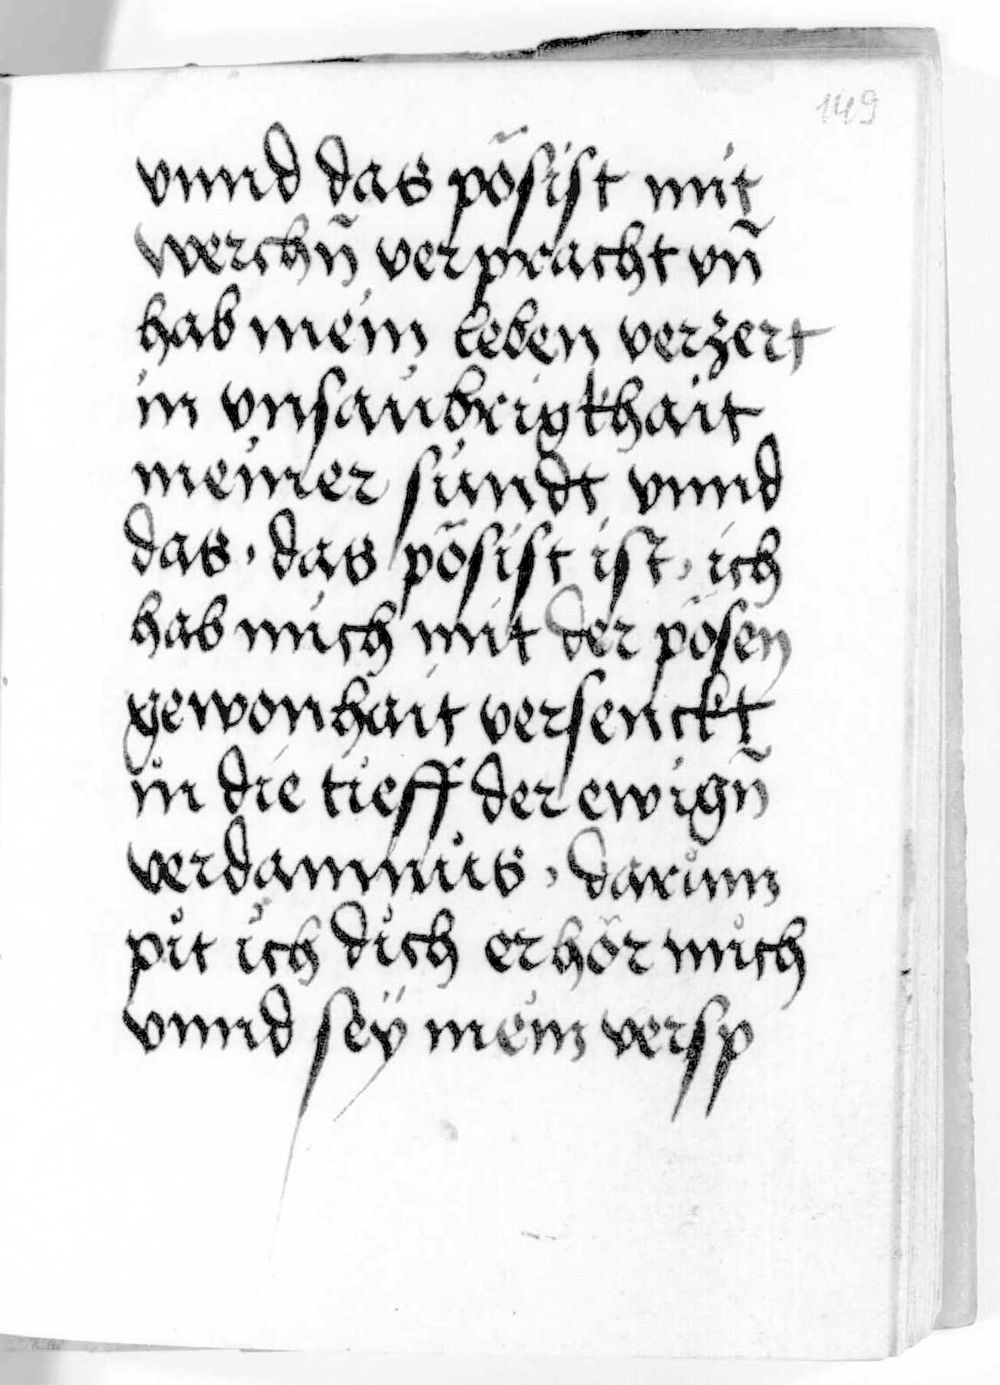 149
vnnd das pösist mit
werchn̄ verpracht vn̄
hab mein leben verzert
in vnsaubrigkhait
meiner sündt vnnd
das · das pösist ist · ich
hab mich mit der pösen
gewonhait versenckt
in die tieff der ewign̄
verdamnus · darum
pit ich dich erhör mich
vnnd seÿ mein versp